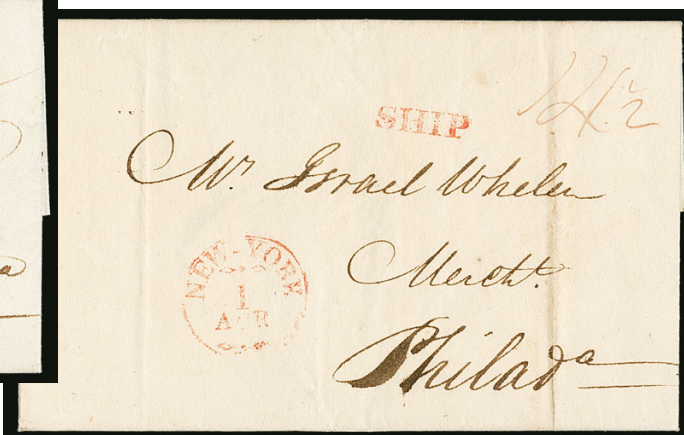 SHIP
14½
Mr. Israel Whelen
Mercht.
Philada
NEW-YORK
1
APR
a